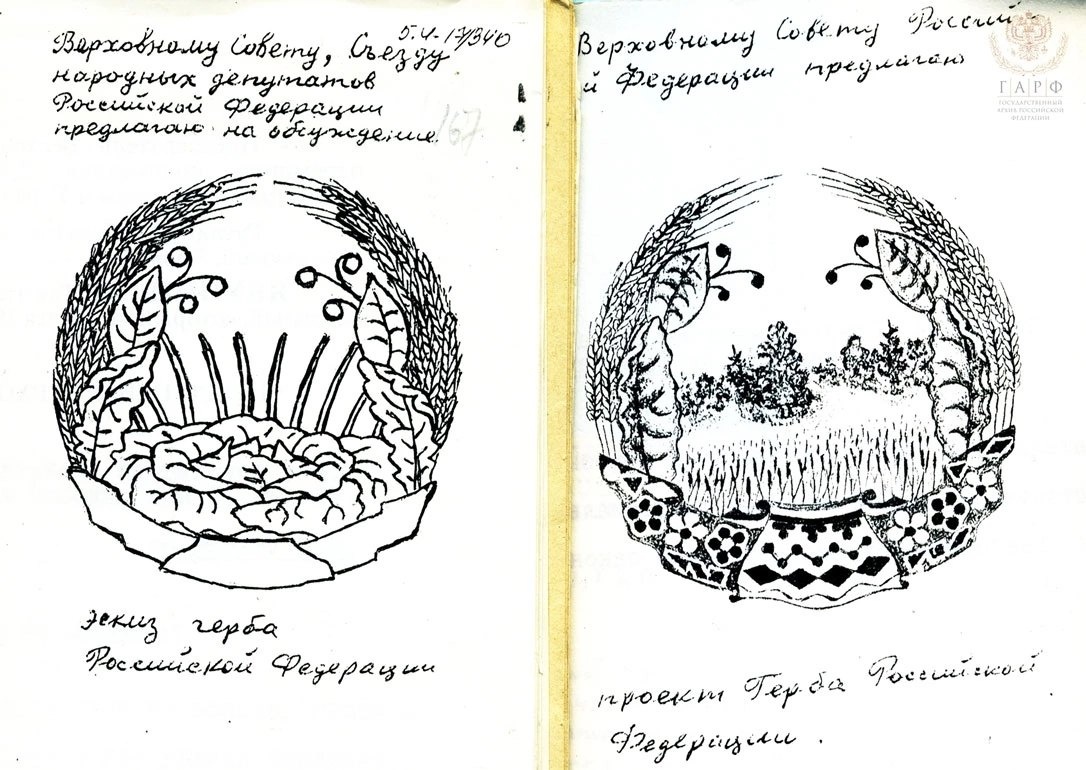 5.4-17/340
Верховному Совету, Съезду
народных депутатов
Российской Федерации
предлагаю на обсуждение
167
эскиз герба
Российской Федерации
Верховному Совету Россий-
й Федерации предлагаю
проект Герба Российской
Федерации.
ГАРФ
ГОСУДАРСТВЕННЫЙ
АРХИВ РОССИЙСКОЙ
ФЕДЕРАЦИИ